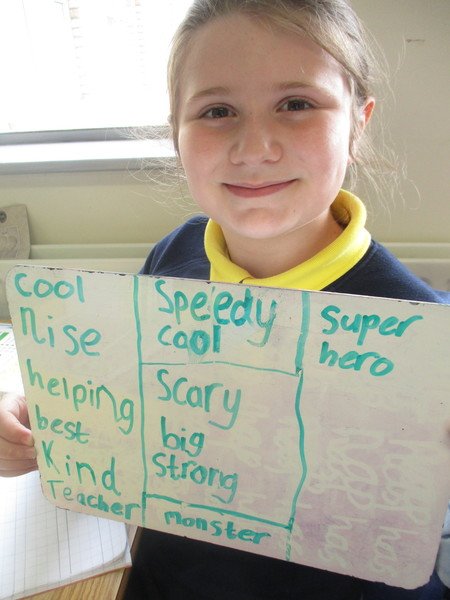 cool
nise
helping
best
Kind
Teacher
Speedy
cool
Scary
big
Strong
monster
Super
hero